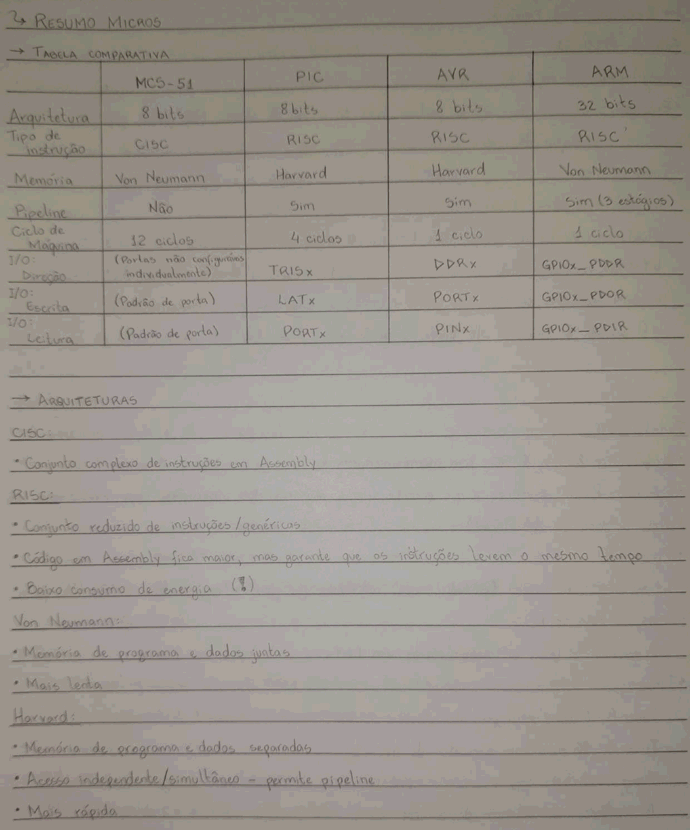 ↳ RESUMO MICROS
→ TABELA COMPARATIVA
MCS-51 PIC AVR ARM
Arquitetura 8 bits 8 bits 8 bits 32 bits
Tipo de Instrução CISC RISC RISC RISC
Memória Von Neumann Harvard Harvard Von Neumann
Pipeline Não Sim Sim Sim (3 estágios)
Ciclo de Máquina 12 ciclos 4 ciclos 1 ciclo 1 ciclo
I/O: Direção (Portas não configuráveis individualmente) TRISx DDRx GPIOx_PDDR
I/O: Escrita (Padrão de porta) LATx PORTx GPIOx_PDOR
I/O: Leitura (Padrão de porta) PORTx PINx GPIOx_PDIR
→ ARQUITETURAS
CISC:
• Conjunto complexo de instruções em Assembly
RISC:
• Conjunto reduzido de instruções/genéricas
• Código em Assembly fica maior, mas garante que as instruções levem o mesmo tempo
• Baixo consumo de energia (!)
Von Neumann:
• Memória de programa e dados juntas
• Mais lenta
Harvard:
• Memória de programa e dados separadas
• Acesso independente/simultâneo - permite pipeline
• Mais rápida